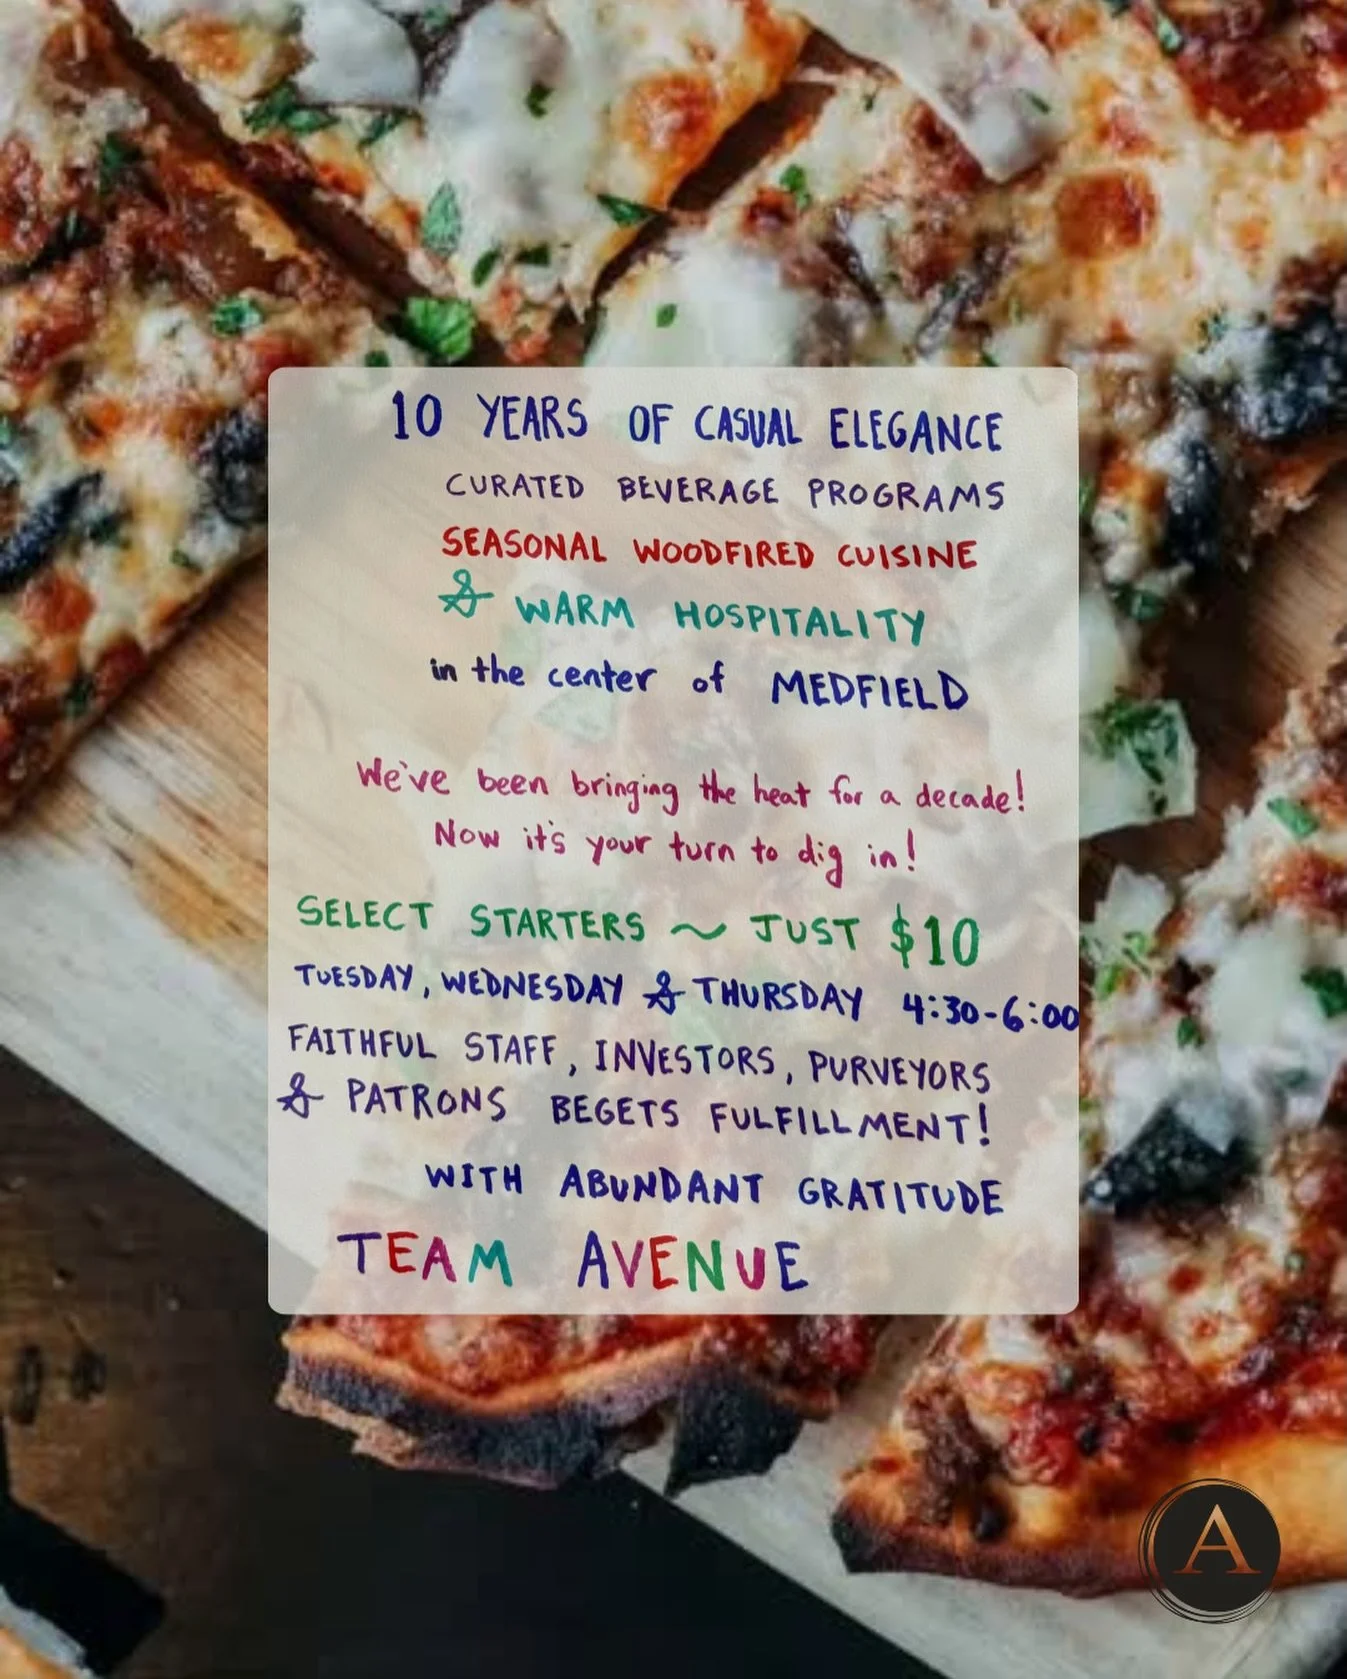 10 YEARS OF CASUAL ELEGANCE
CURATED BEVERAGE PROGRAMS
SEASONAL WOODFIRED CUISINE
& WARM HOSPITALITY
in the center of MEDFIELD
We've been bringing the heat for a decade!
Now it's your turn to dig in!
SELECT STARTERS ~ JUST $10
TUESDAY, WEDNESDAY & THURSDAY 4:30-6:00
FAITHFUL STAFF, INVESTORS, PURVEYORS
& PATRONS BEGETS FULFILLMENT!
WITH ABUNDANT GRATITUDE
TEAM AVENUE
A